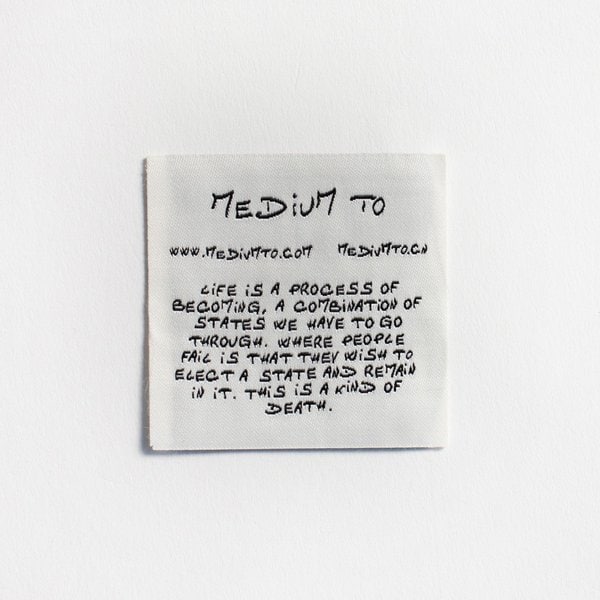 MEDiUM TO
WWW.MEDiUMTO.COM MEDiUMTO.CN
LiFE iS A PROCESS OF
BECOMiNG, A COMBiNATiON OF
STATES WE HAVE TO GO
THROUGH. WHERE PEOPLE
FAiL iS THAT THEY WiSH TO
ELECT A STATE AND REMAiN
iN iT. THiS iS A KiND OF
DEATH.